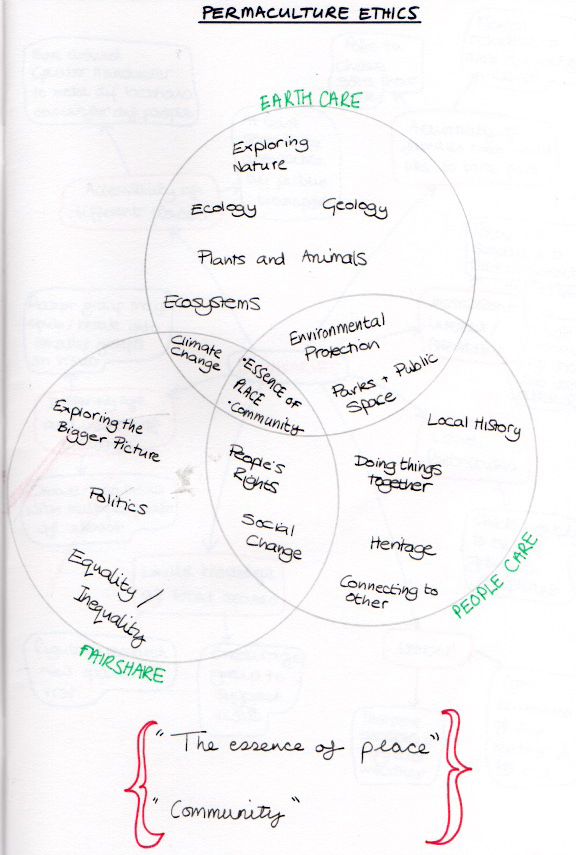 PERMACULTURE ETHICS
EARTH CARE
Exploring
Nature
Ecology
Geology
Plants and Animals
Ecosystems
Climate
Change
Environmental
Protection
Parks + Public
Space
• ESSENCE OF
PLACE
• Community
Exploring the
Bigger Picture
Politics
Equality /
Inequality
People's
Rights
Social
Change
Local History
Doing things
together
Heritage
Connecting to
Other
PEOPLE CARE
FAIRSHARE
"The essence of peace"
"Community"